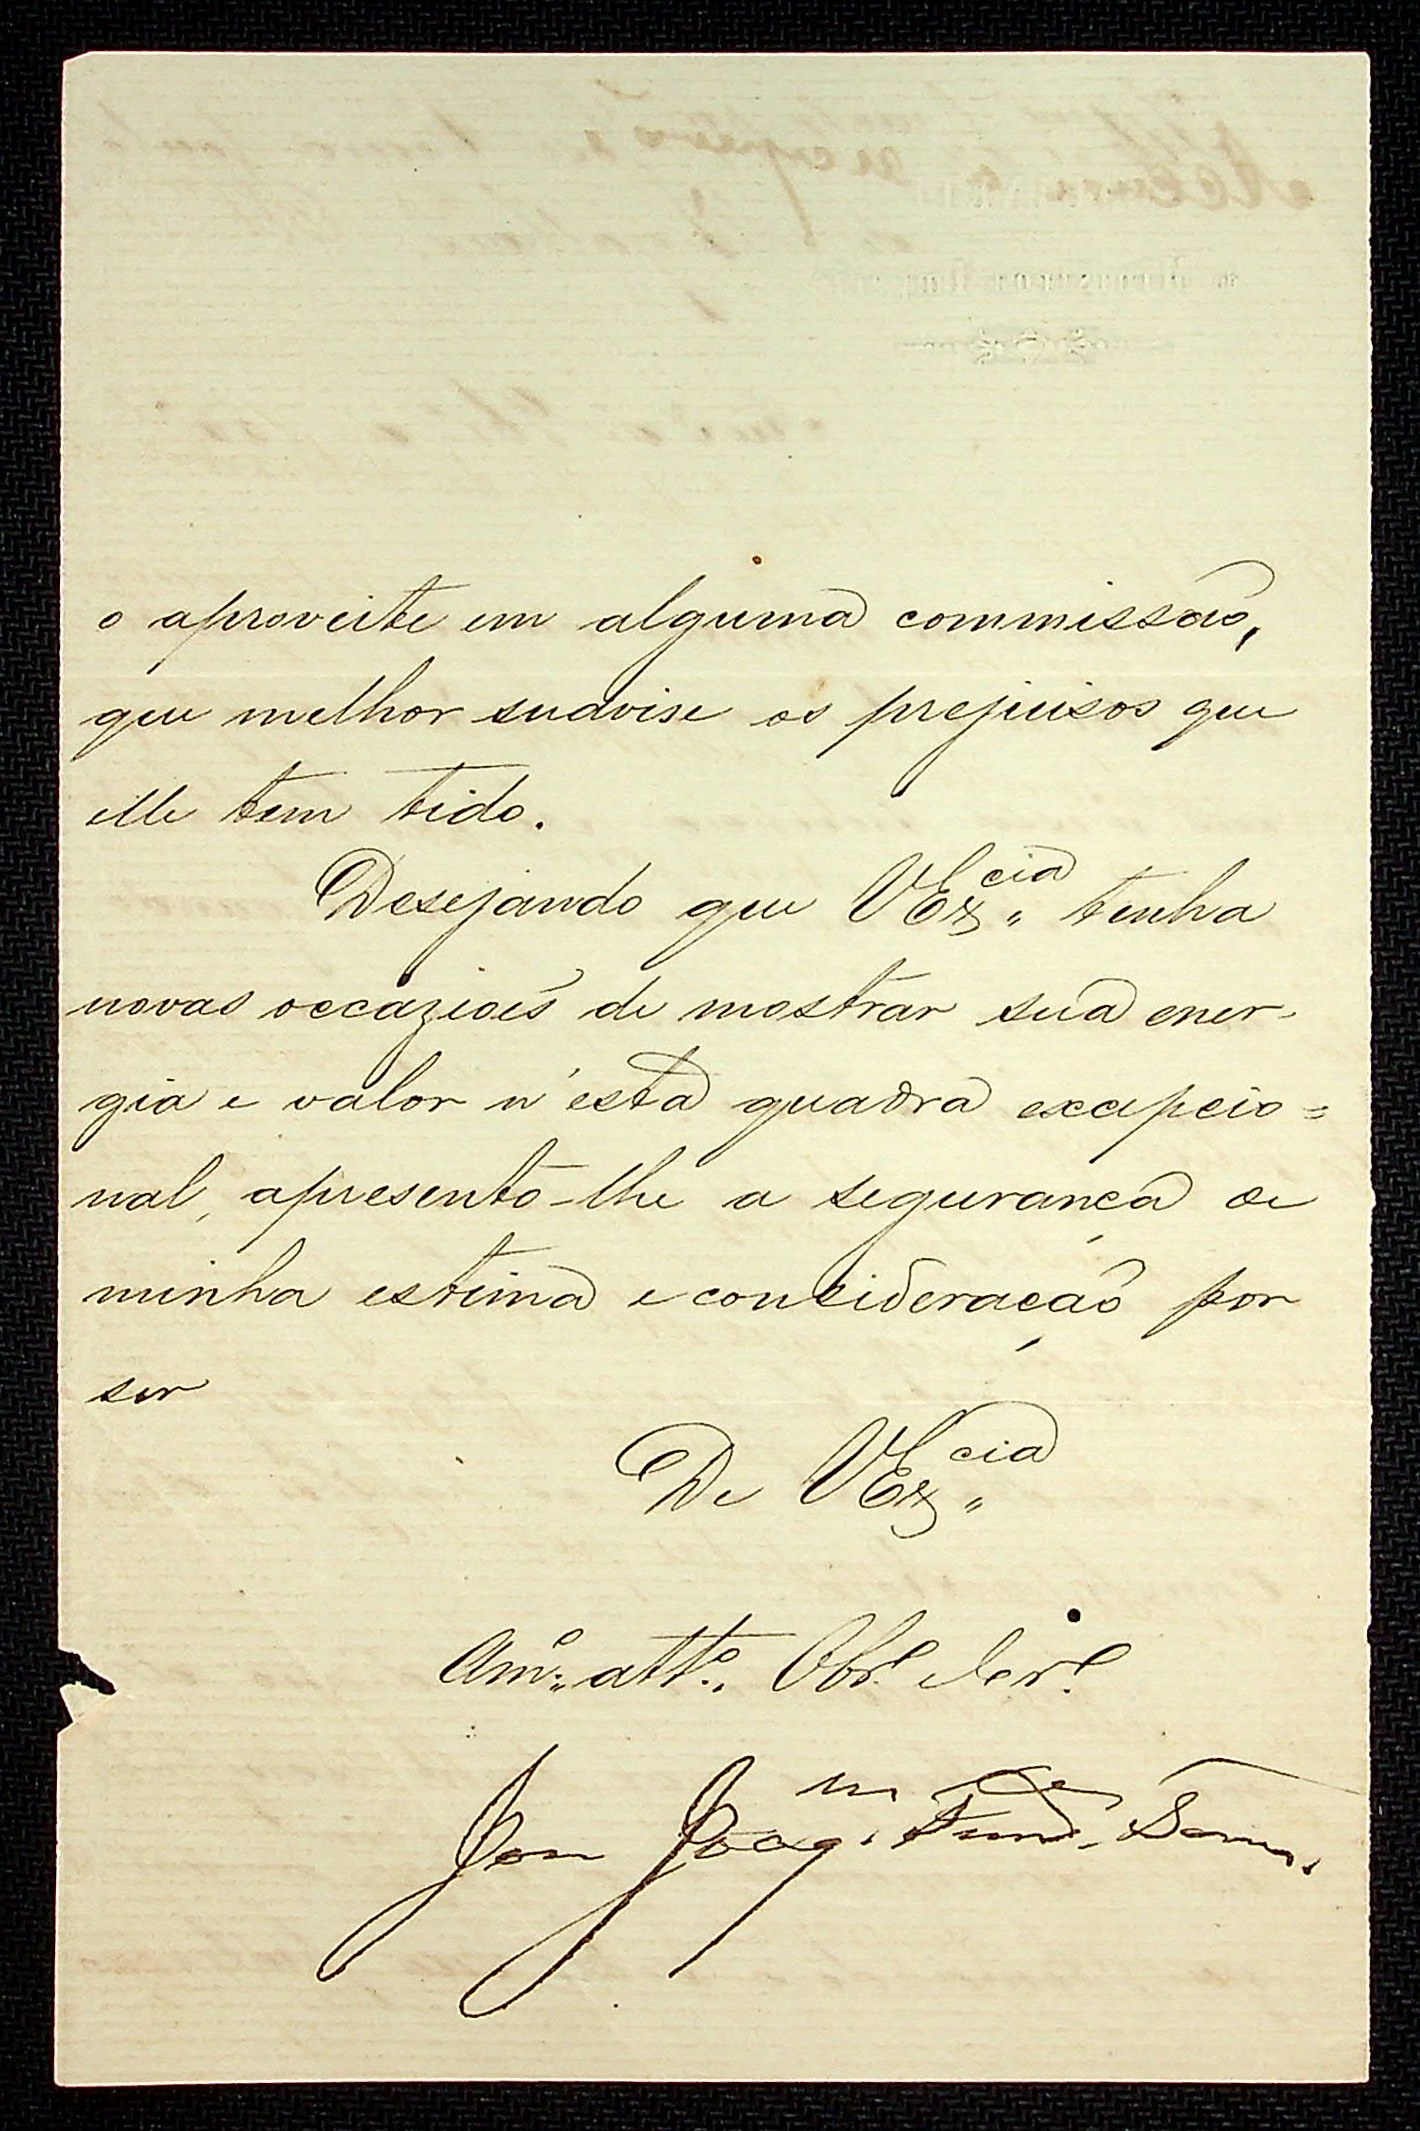 o aproveite em alguma commissão,
que melhor suavise os prejuisos que
elle tem tido.
Desejando que VEx.cia tenha
novas occaziões de mostrar sua ener-
gia e valor n'esta quadra excepcio=
nal, apresento-lhe a segurança de
minha estima e consideração por
ser
De VEx.cia
Am.º att.º Obr.º e Ser.º
José Joaq.m